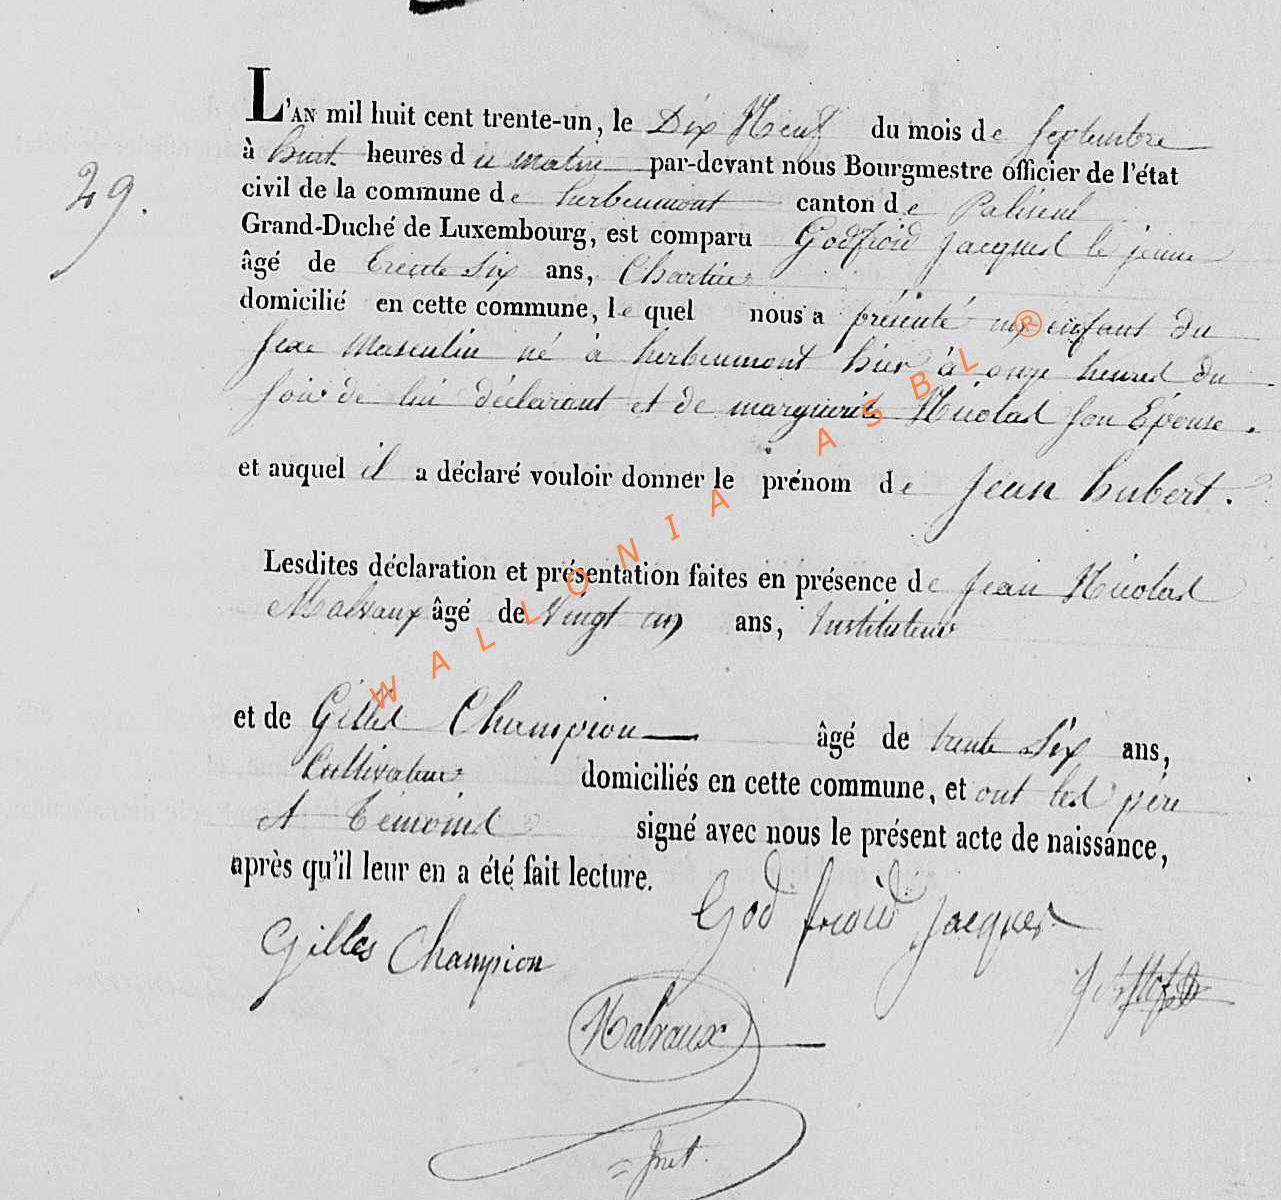 L'AN mil huit cent trente-un, le Dix Neuf du mois de Septembre
29.
à huit heures du matin par-devant nous Bourgmestre officier de l'état
civil de la commune de herbeumont canton de Paliseul
Grand-Duché de Luxembourg, est comparu Godfroid Jacques le jeune
âgé de trente Six ans, Chartier
domicilié en cette commune, le quel nous a présenté un enfant du
Sexe Masculin né à herbeumont hier à onze heures du
Soir de lui déclarant et de marguerite Nicolas Son Epouse.
et auquel il a déclaré vouloir donner le prénom de Jean hubert.
Lesdites déclaration et présentation faites en présence de Jean Nicolas
Malvaux âgé de Vingt un ans, Instituteur
et de Gilles Champion âgé de trente Six ans,
Cultivateur domiciliés en cette commune, et ont les père
et Témoins signé avec nous le présent acte de naissance,
après qu'il leur en a été fait lecture.
God froid Jacques
Gilles Champion
Malvaux
WALLONIA ASBL ®